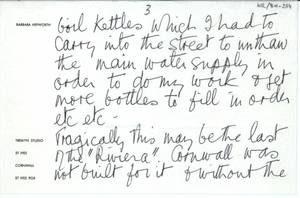 3
BARBARA HEPWORTH
boil Kettles which I had to
carry into the street to unthaw
the main water supply in
order to do my work & get
more bottles to fill in order
etc etc -
Tragically this may be the last
of the "Riviera". Cornwall was
not built for it & without the
TREWYN STUDIO
ST IVES
CORNWALL